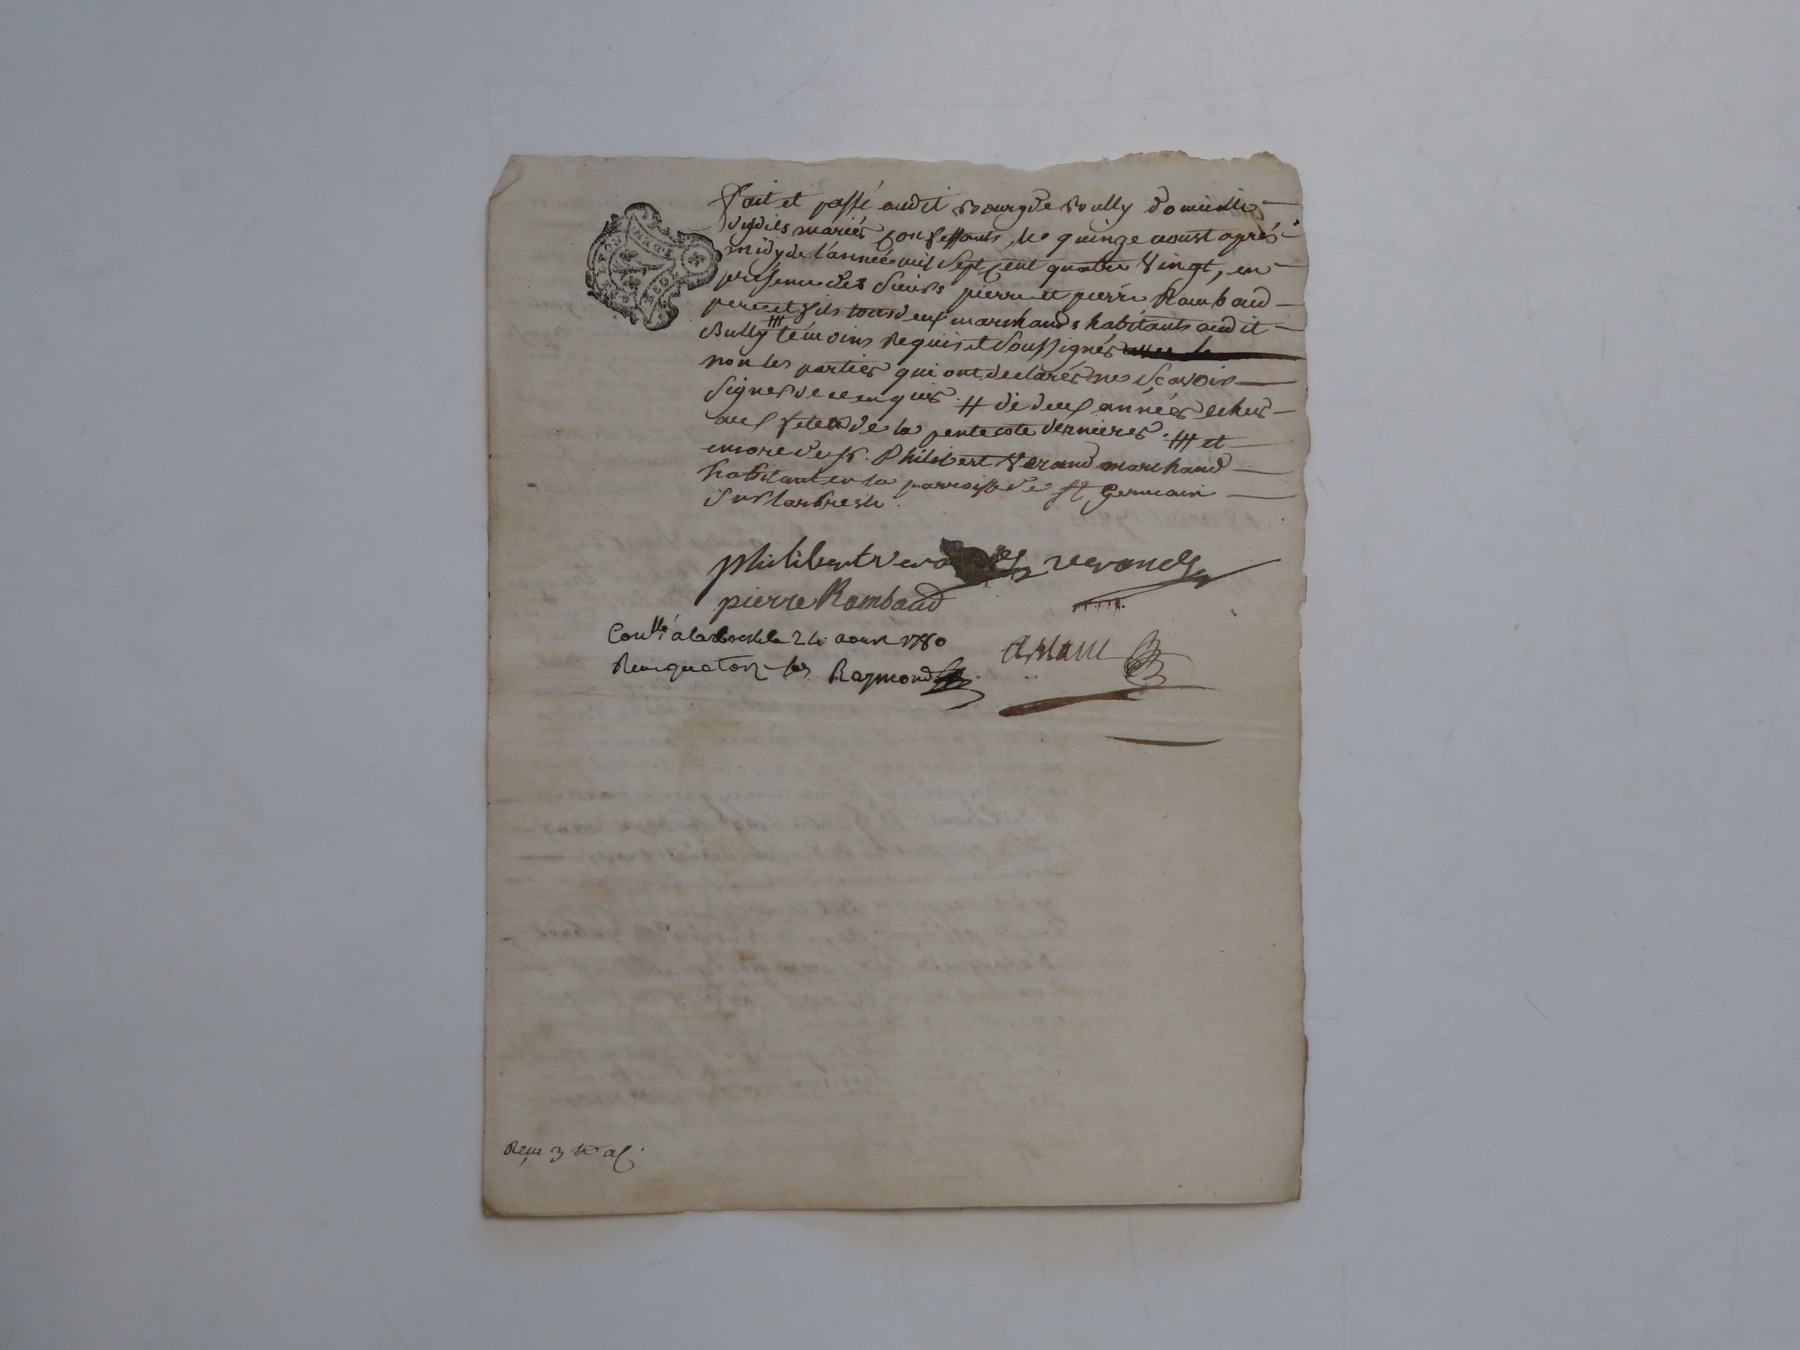 fait et passé audit Bourg de Bully domicille
desdits mariés confessants, le quinze aoust après
midy de l'année mil sept cent quatre vingt, en
presence des sieurs pierre et pierre Rambaud
pere et fils tous deux marchands habitants audit
Bully ╫ témoins requis et soussignés
non les parties qui ont declarés ne sçavoir
signer de ce enquis. # de deux années echus
aux fetes de la pentecote dernieres. ╫ et
encore de sr. Philibert Verand marchand
habitant en la parroisse de st Germain
sur Larbresle.
philibert verand
pierre Rambaud
Conllé à larbresle le 24 aout 1780
Raymond
Reçu 3